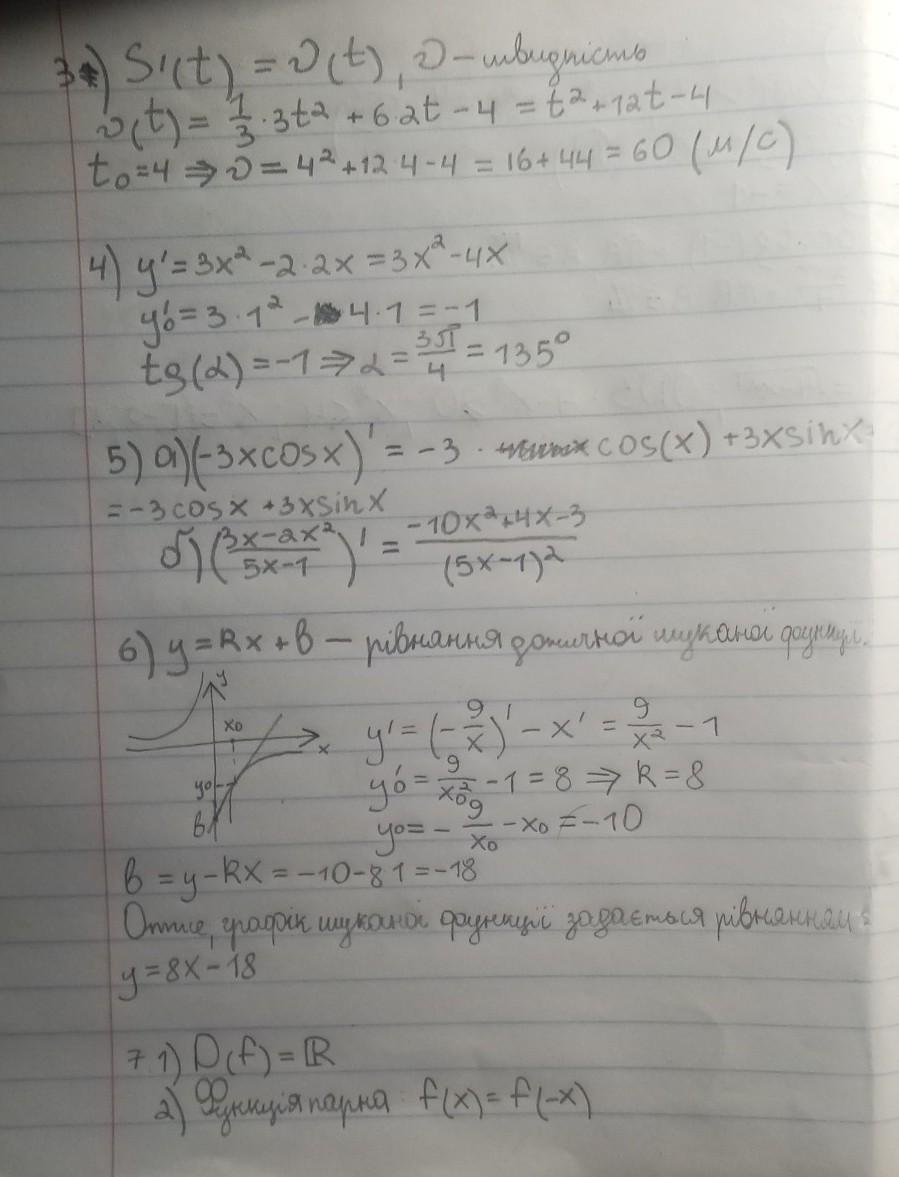 3) S'(t) = υ(t), υ – швидкість
υ(t) = 1/3 · 3t² + 6·2t − 4 = t² + 12t − 4
t₀ = 4 ⇒ υ = 4² + 12·4 − 4 = 16 + 44 = 60 (м/с)
4) y' = 3x² − 2·2x = 3x² − 4x
y'₀ = 3·1² − 4·1 = −1
tg(α) = −1 ⇒ α = 3π/4 = 135°
5) а) (−3x cosx)' = −3 · cos(x) + 3x sinx =
= −3cosx + 3x sinx
б) ((3x − 2x²)/(5x − 1))' = (−10x² + 4x − 3)/(5x − 1)²
6) y = kx + b – рівняння дотичної шуканої функції.
y
x₀
x
y₀
b
y' = (−9/x)' − x' = 9/x² − 1
y'₀ = 9/x₀² − 1 = 8 ⇒ k = 8
y₀ = −9/x₀ − x₀ = −10
b = y − kx = −10 − 8·1 = −18
Отже, графік шуканої функції задається рівнянням:
y = 8x − 18
7. 1) D(f) = ℝ
2) Функція парна f(x) = f(−x)